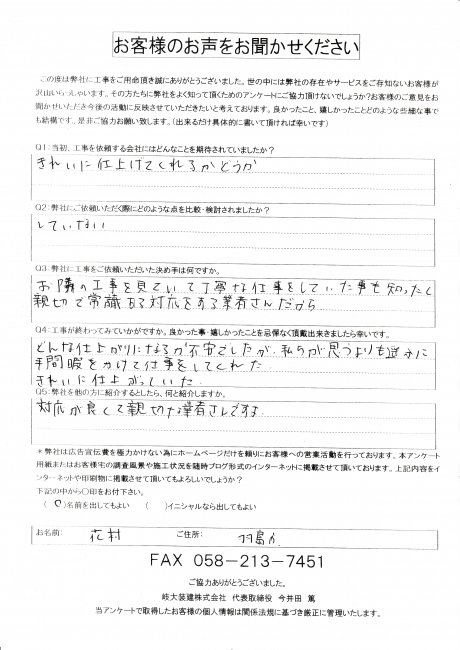 お客様のお声をお聞かせください
この度は弊社に工事をご用命頂き誠にありがとうございました。世の中には弊社の存在やサービスをご存知ないお客様が
沢山いらっしゃいます。その方たちに弊社をよく知って頂くためのアンケートにご協力頂けないでしょうか?お客様のご意見をお
聞かせいただき今後の活動に反映させていただきたいと考えております。良かったこと、嬉しかったことどのような些細な事で
も結構です。是非ご協力お願い致します。(出来るだけ具体的に書いて頂ければ幸いです)
Q1:当初、工事を依頼する会社にはどんなことを期待されていましたか?
きれいに仕上げてくれるかどうか
Q2:弊社にご依頼いただく際にどのような点を比較・検討されましたか?
していない
Q3:弊社に工事をご依頼いただいた決め手は何ですか。
お隣の工事を見ていて丁寧な仕事をしていた事も知ったし
親切で常識ある対応をする業者さんだから
Q4:工事が終わってみていかがですか。良かった事・嬉しかったことを忌憚なく頂戴出来きましたら幸いです。
どんな仕上がりになるか不安でしたが、私のが思うよりも遥かに
手間暇をかけて仕事をしてくれた。
きれいに仕上がっていた。
Q5:弊社を他の方に紹介するとしたら、何と紹介しますか。
対応が良くて親切な業者さんですよ。
*弊社は広告宣伝費を極力かけない為にホームページだけを頼りにお客様への営業活動を行っております。本アンケート
用紙またはお客様宅の調査風景や施工状況を随時ブログ形式のインターネットに掲載させて頂いております。上記内容をイ
ンターネットや印刷物に掲載させて頂いてもよろしいでしょうか?
下記の中から〇印をお付下さい。
(〇)名前を出してもよい ( )イニシャルなら出してもよい
お名前: 花村 ご住所: 羽島市
FAX 058-213-7451
ご協力ありがとうございました。
岐大装建株式会社 代表取締役 今井田 篤
当アンケートで取得したお客様の個人情報は関係法規に基づき厳正に管理いたします。